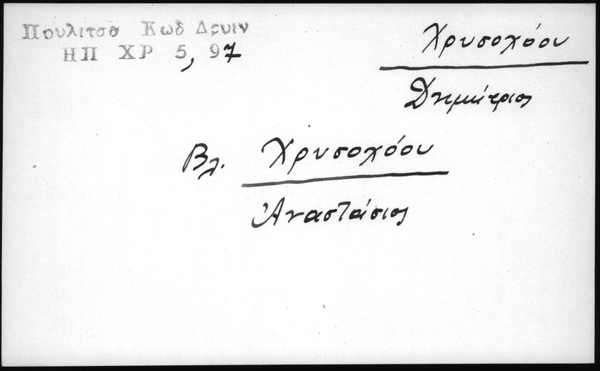 Πουλιτσα Κωδ Δρυιν
ΗΠ ΧΡ 5, 97
Χρυσοχόου
Δημήτριος
Βλ. Χρυσοχόου
Ἀναστάσιος